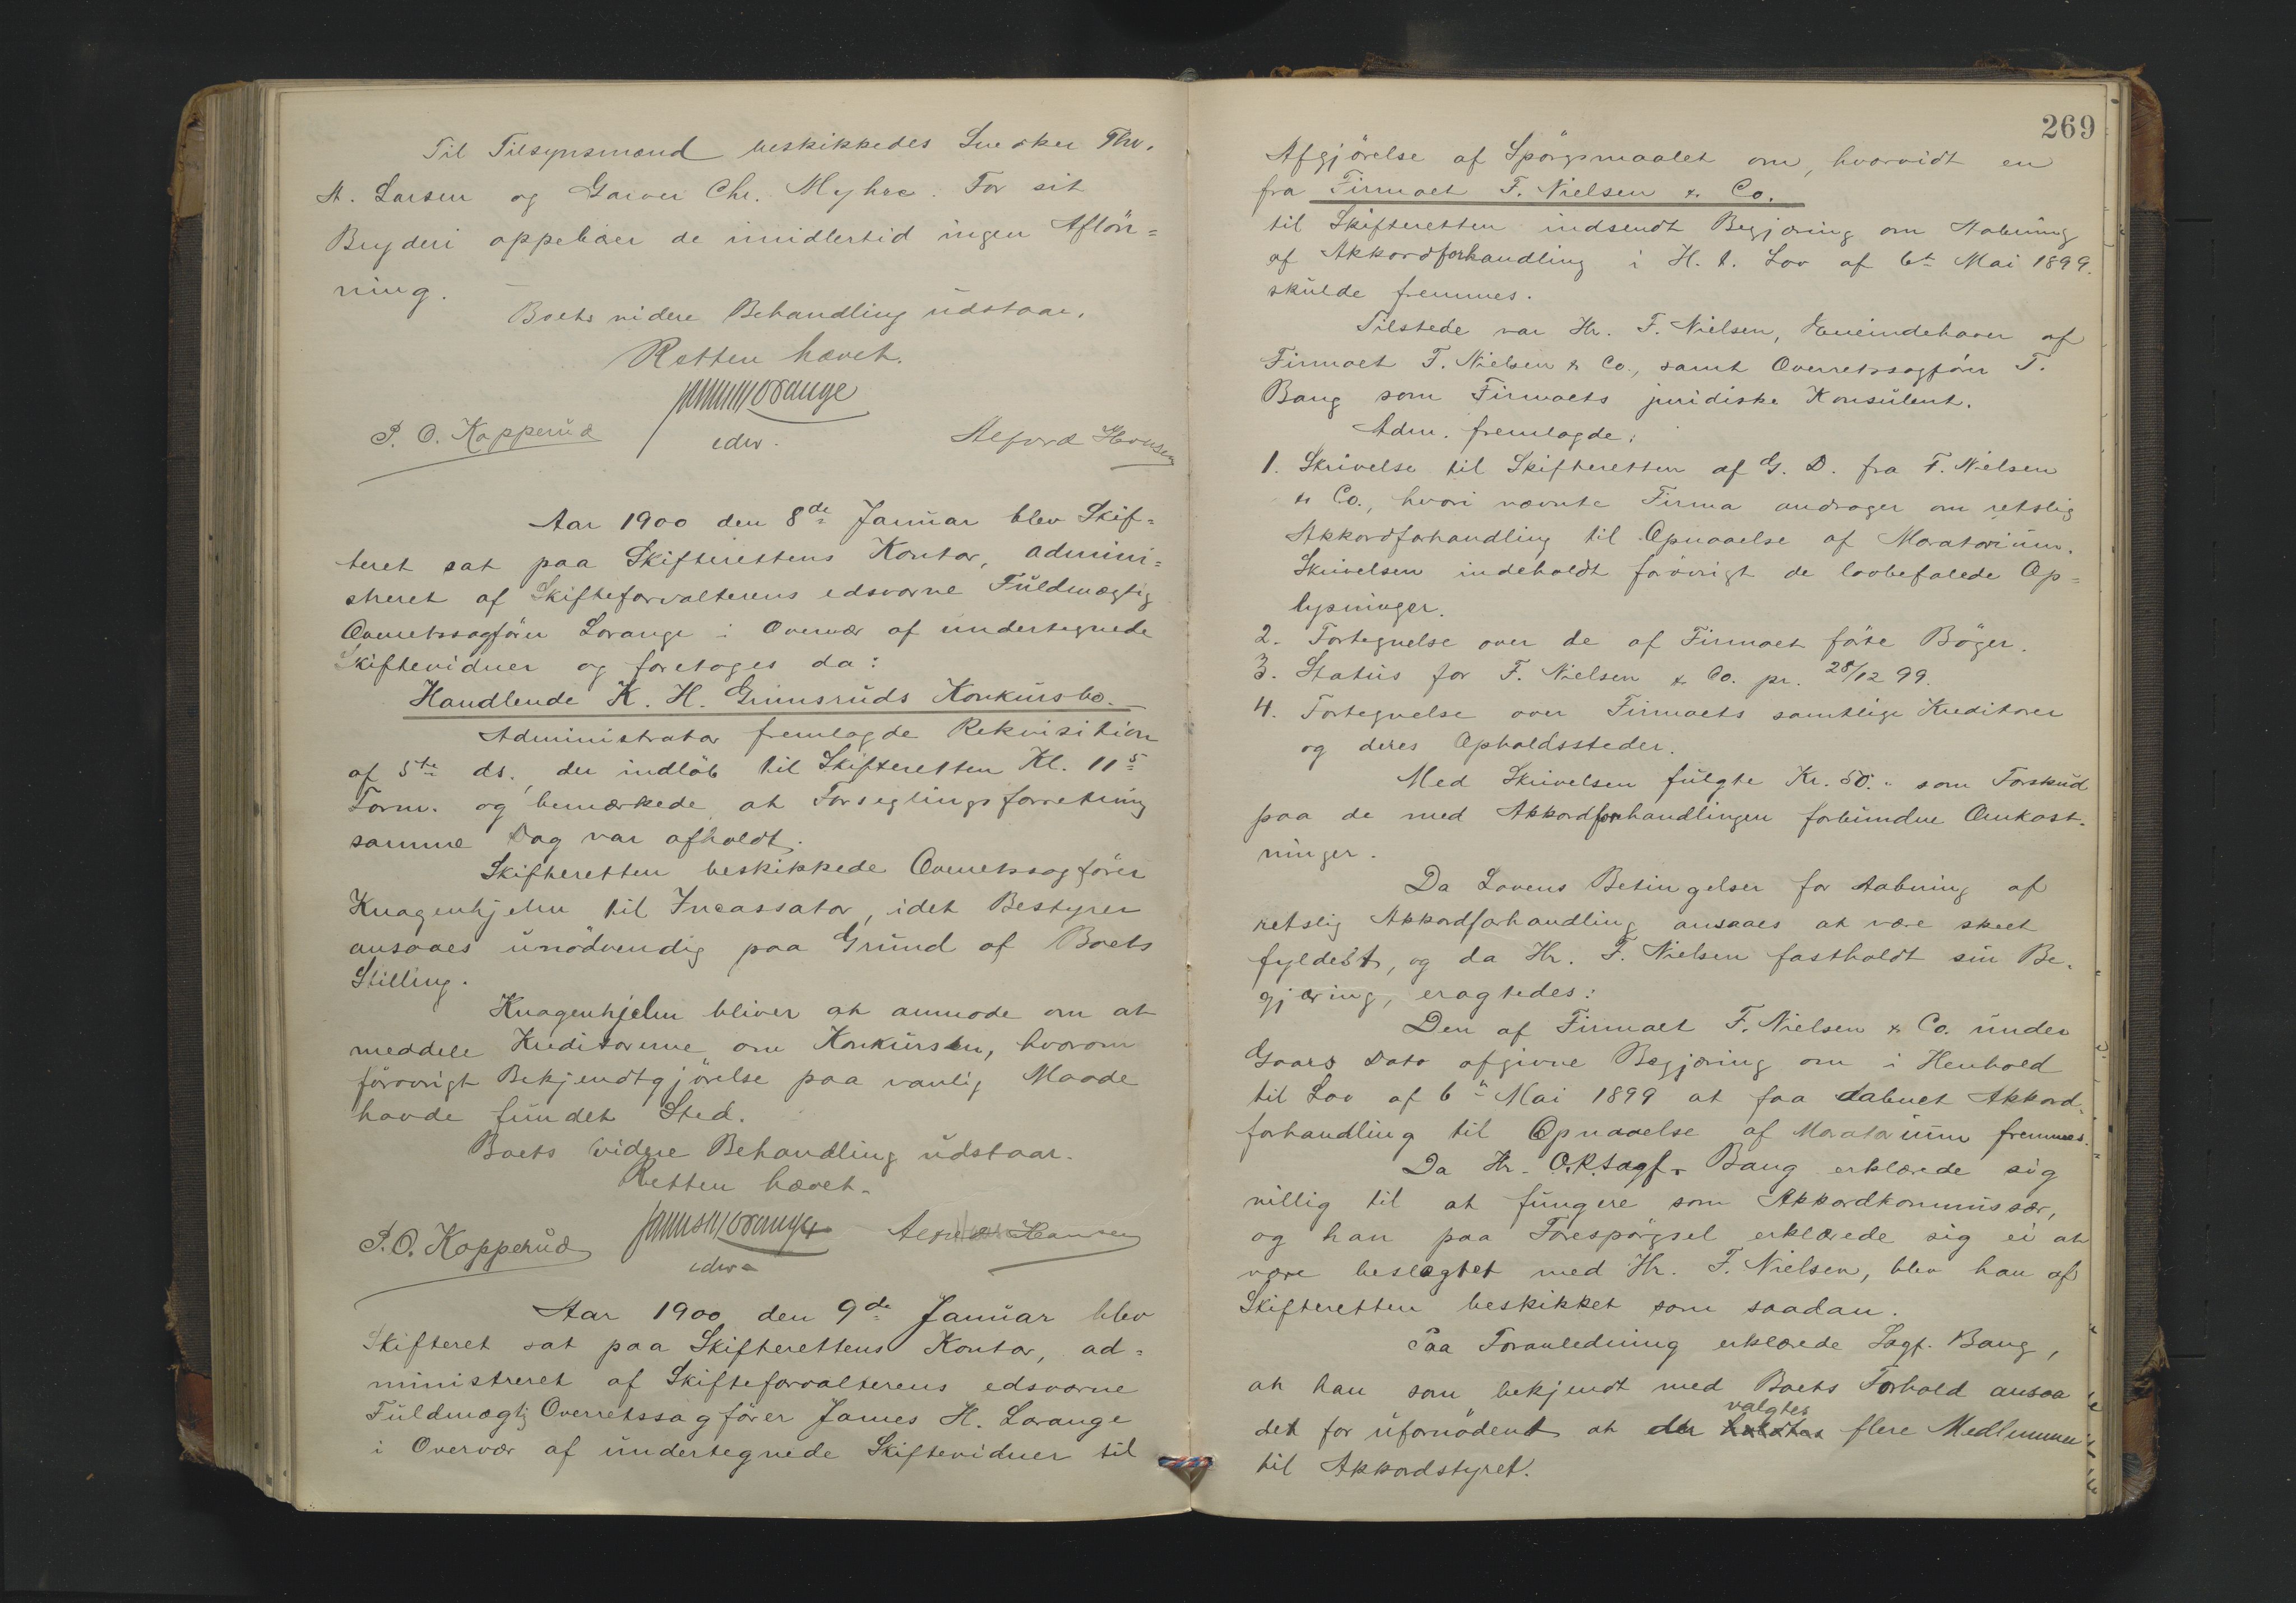 Til Tilsynsmænd beskikkedes Snedker Thv.
A. Larsen og Garver Chr. Myhre. For sit
Bryderi oppebær de imidlertid ingen Aflön=
ning.
Boets videre Behandling udstaar.
Retten hævet.
James H. Lorange
P. O. Kopperud edsv. Alfred Hansen
Aar 1900 den 8de Januar blev Skif=
teret sat paa Skifterettens Kontor, admini=
streret af Skifteforvalterens edsvorne Fuldmægtig
Overretssagförer Lorange i Overvær af undertegnede
Skiftevidner og foretoges da:
Handlende K. H. Grimsruds Konkursbo.
Administrator fremlagde Rekvisition
af 5te ds., der indlöb til Skifteretten Kl. 11 5
Form. og bemærkede at Forseglingsforretning
samme Dag var afholdt.
Skifteretten beskikkede Overretssagförer
Knagenhjelm til Incassator, idet Bestyrer
ansaaes unödvendig paa Grund af Boets
Stilling.
Knagenhjelm bliver at anmode om at
meddele Kreditorerne om Konkursen, hvorom
forövrigt Bekjendtgjörelse paa vanlig Maade
havde fundet Sted.
Boets videre Behandling udstaar.
Retten hævet.
P. O. Kopperud James H. Lorange Alfred Hansen
edsv.
Aar 1900 den 9de Januar blev
Skifteret sat paa Skifterettens Kontor, ad=
ministreret af Skifteforvalterens edsvorne
Fuldmægtig Overretssagförer James H. Lorange
i Overvær af undertegnede Skiftevidner til
269
Afgjörelse af Spörgsmaalet om, hvorvidt en
fra Firmaet F. Nielsen & Co.
til Skifteretten indsendt Begjæring om Aabning
af Akkordforhandling i H. t. Lov af 6te Mai 1899
skulde fremmes.
Tilstede var Hr. F. Nielsen, Eneindehaver af
Firmaet F. Nielsen & Co., samt Overretssagförer T.
Bang som Firmaets juridiske Konsulent.
Adm. fremlagde:
1. Skrivelse til Skifteretten af G. D. fra F. Nielsen
& Co., hvori nævnte Firma andrager om retslig
Akkordforhandling til Opnaaelse af Moratorium.
Skrivelsen indeholdt forövrigt de lovbefalede Op=
lysninger.
2. Fortegnelse over de af Firmaet förte Böger.
3. Status for F. Nielsen & Co. pr. 28/12 99.
4. Fortegnelse over Firmaets samtlige Kreditorer
og deres Opholdssteder.
Med Skrivelsen fulgte Kr. 50.- som Forskud
paa de med Akkordforhandlingen forbundne Omkost-
ninger.
Da Lovens Betingelser for Aabning af
retslig Akkordforhandling ansaaes at være skeet
fyldest, og da Hr. F. Nielsen fastholdt sin Be-
gjæring, eragtedes:
Den af Firmaet F. Nielsen & Co. under
Gaars Dato afgivne Begjæring om i Henhold
til Lov af 6te Mai 1899 at faa aabnet Akkord-
forhandling til Opnaaelse af Moratorium fremmes.
Da Hr. O.R.sagf. Bang erklærede sig
villig til at fungere som Akkordkommissær,
og han paa Forespörgsel erklærede sig ei at
være beslægtet med Hr. F. Nielsen, blev han af
Skifteretten beskikket som saadan.
Paa Foranledning erklærede Sagf. Bang,
at han som bekjendt med Boets Forhold ansaa
det for ufornödent at der valgtes flere Medlemmer
til Akkordstyret.